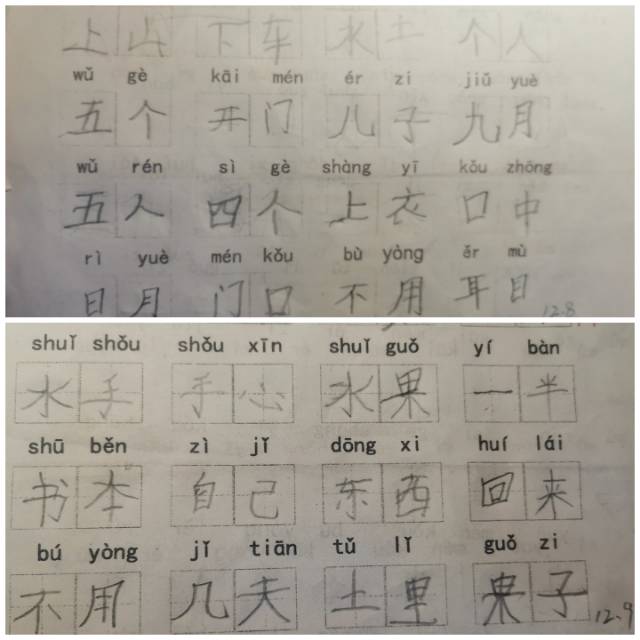 上山 下车 水土 个人
wǔ gè kāi mén ér zi jiǔ yuè
五个 开门 儿子 九月
wǔ rén sì gè shàng yī kǒu zhōng
五人 四个 上衣 口中
rì yuè mén kǒu bù yòng ěr mù
日月 门口 不用 耳目
12.8
shuǐ shǒu shǒu xīn shuǐ guǒ yí bàn
水手 手心 水果 一半
shū běn zì jǐ dōng xi huí lái
书本 自己 东西 回来
bú yòng jǐ tiān tǔ lǐ guǒ zi
不用 几夫 土里 果子
12.9